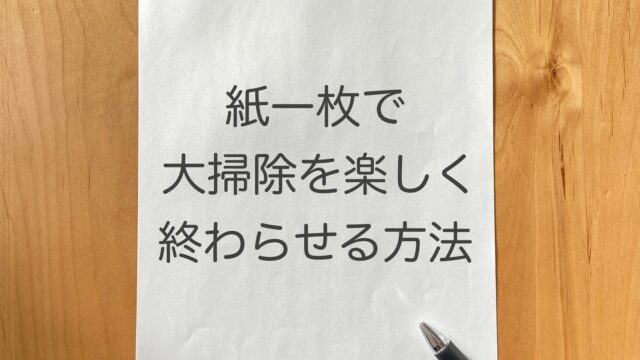 紙一枚で
大掃除を楽しく
終わらせる方法